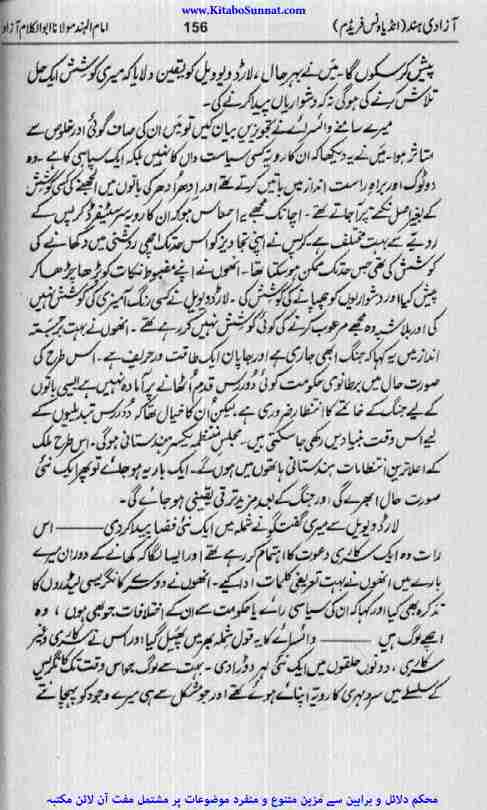 www.KitaboSunnat.com
آزادی ہند (انڈیا ونس فریڈم) 156 امام الہند مولانا ابوالکلام آزاد
پیش کر سکوں گا۔ میں نے بہرحال، لارڈ ویویل کو یقین دلایا کہ میری کوشش ایک حل
تلاش کرنے کی ہوگی نہ کہ دشواریاں پیدا کرنے کی۔
میرے سامنے وائسرائے نے تجویزیں بیان کیں تو میں ان کی صاف گوئی اور خلوص سے
متاثر ہوا۔ میں نے یہ دیکھا کہ ان کا رویہ کسی سیاست داں کا نہیں بلکہ ایک سپاہی کا ہے۔ وہ
دو ٹوک اور براہِ راست انداز میں باتیں کرتے تھے اور ادھر اُدھر کی باتوں میں الجھنے کی کسی کوشش
کے بغیر اصل نکتے پر آ جاتے تھے۔ اچانک مجھے یہ احساس ہوا کہ ان کا رویہ سر سٹیفرڈ کرپس کے
رویے سے بہت مختلف ہے۔ کرپس نے اپنی تجاویز کو اس حد تک اچھی روشنی میں دکھانے کی
کوشش کی تھی جس حد تک ممکن ہو سکتا تھا۔ انھوں نے اپنے مضبوط نکات کو بڑھا چڑھا کر
پیش کیا اور دشواریوں کو چھپانے کی کوشش کی۔ لارڈ ویویل نے کسی رنگ آمیزی کی کوشش نہیں
کی اور بلاشبہ وہ مجھے مرعوب کرنے کی کوئی کوشش نہیں کر رہے تھے۔ انھوں نے بہت برجستہ
انداز میں یہ کہا کہ جنگ ابھی جاری ہے اور جاپان ایک طاقت ور حریف ہے۔ اس طرح کی
صورت حال میں برطانوی حکومت کوئی دُور رس قدم اُٹھانے پر آمادہ نہیں ہے ایسی باتوں
کے لیے جنگ کے خاتمے کا انتظار ضروری ہے لیکن اُن کا خیال تھا کہ دُور رس تبدیلیوں کے
لیے اس وقت بنیادیں رکھی جا سکتی ہیں۔ مجلسِ منتظمہ یکسر ہندستانی ہوگی۔ اس طرح ملک
کے اعلا ترین انتظامات ہندستانی ہاتھوں میں ہوں گے۔ ایک بار یہ ہو جائے تو پھر ایک نئی
صورت حال ابھرے گی اور جنگ کے بعد مزید ترقی یقینی ہو جائے گی۔
لارڈ ویویل سے میری گفت گو نے شملہ میں ایک نئی فضا پیدا کر دی ——— اس
رات وہ ایک سرکاری دعوت کا اہتمام کر رہے تھے اور ایسا لگا کہ کھانے کے دوران میرے
بارے میں انھوں نے بہت تعریفی کلمات ادا کیے۔ انھوں نے دوسرے کانگریسی لیڈروں کا
تذکرہ بھی کیا اور کہا کہ ان کی سیاسی رائے یا حکومت سے ان کے اختلافات جو بھی ہوں، وہ
اچھے لوگ ہیں ——— وائسرائے کا یہ قول شملہ بھر میں پھیل گیا اور اس نے سرکاری و غیر
سرکاری، دونوں حلقوں میں ایک نئی لہر دوڑا دی۔ بہت سے لوگ جو اس وقت تک کانگریس
کے سلسلے میں سرد مہری کا رویہ اپنائے ہوئے تھے اور جو مشکل سے ہی میرے وجود کو پہچانتے
محکم دلائل و براہین سے مزین متنوع و منفرد موضوعات پر مشتمل مفت آن لائن مکتبہ